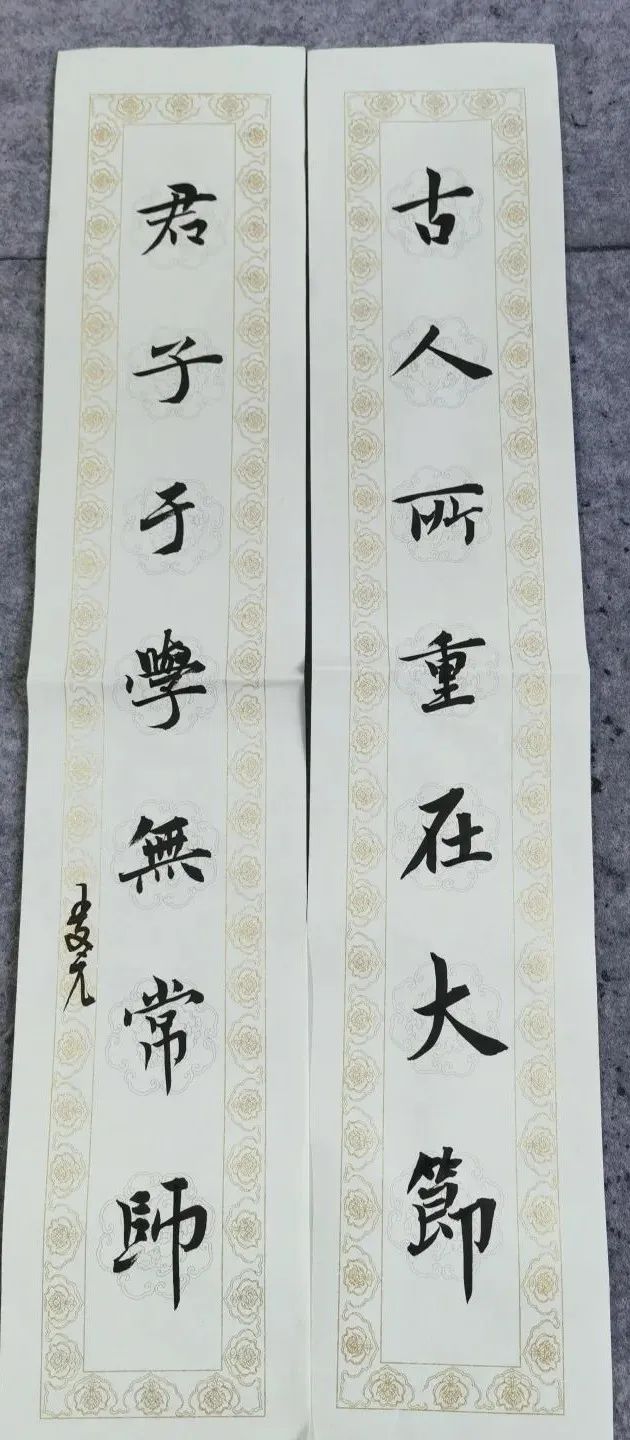 古人所重在大節
君子于学無常師